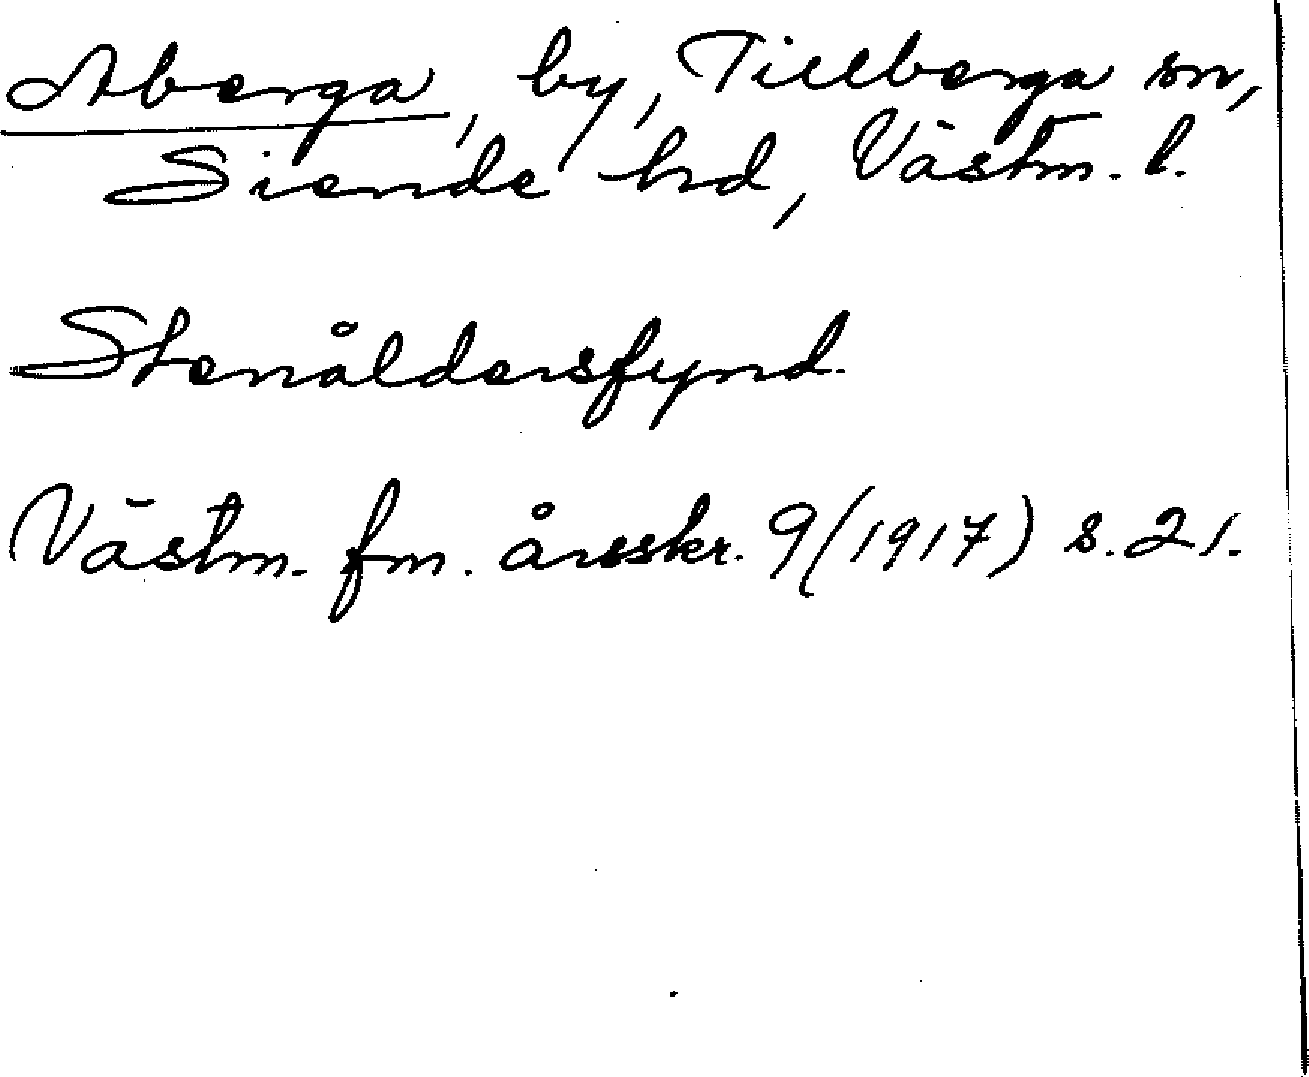 Aberga, by, Tillberga sn,
Siende hd, Västm. l.
Stenåldersfynd.
Västm. fm. årsskr. 9 (1917) s. 21.